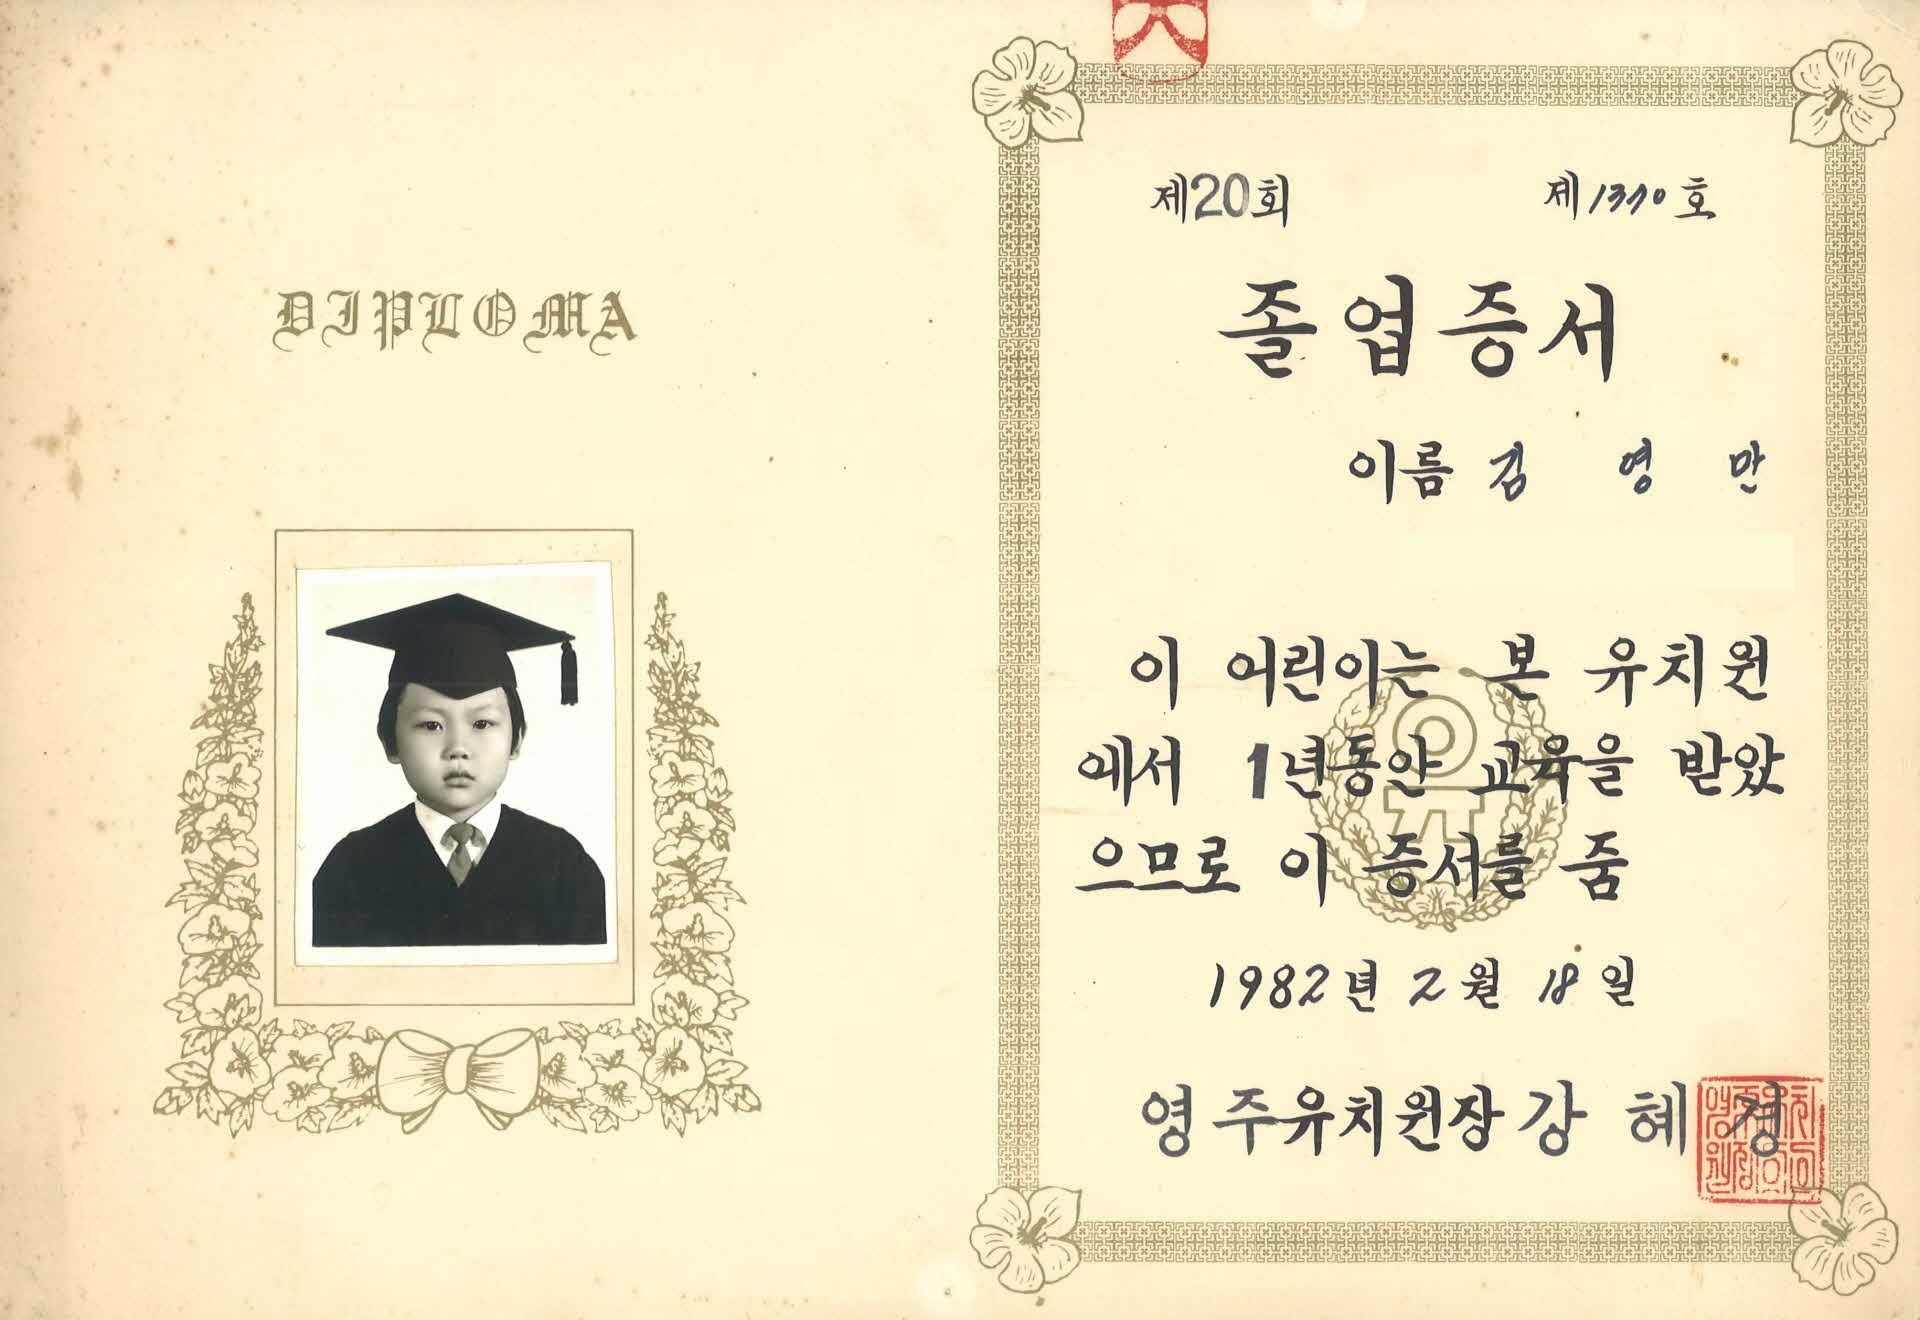 DIPLOMA
제20회 제1370호
졸업증서
이름 김 영 만
이 어린이는 본 유치원
에서 1년동안 교육을 받았
으므로 이 증서를 줌
1982년 2월 18일
영주유치원장 강 혜 경